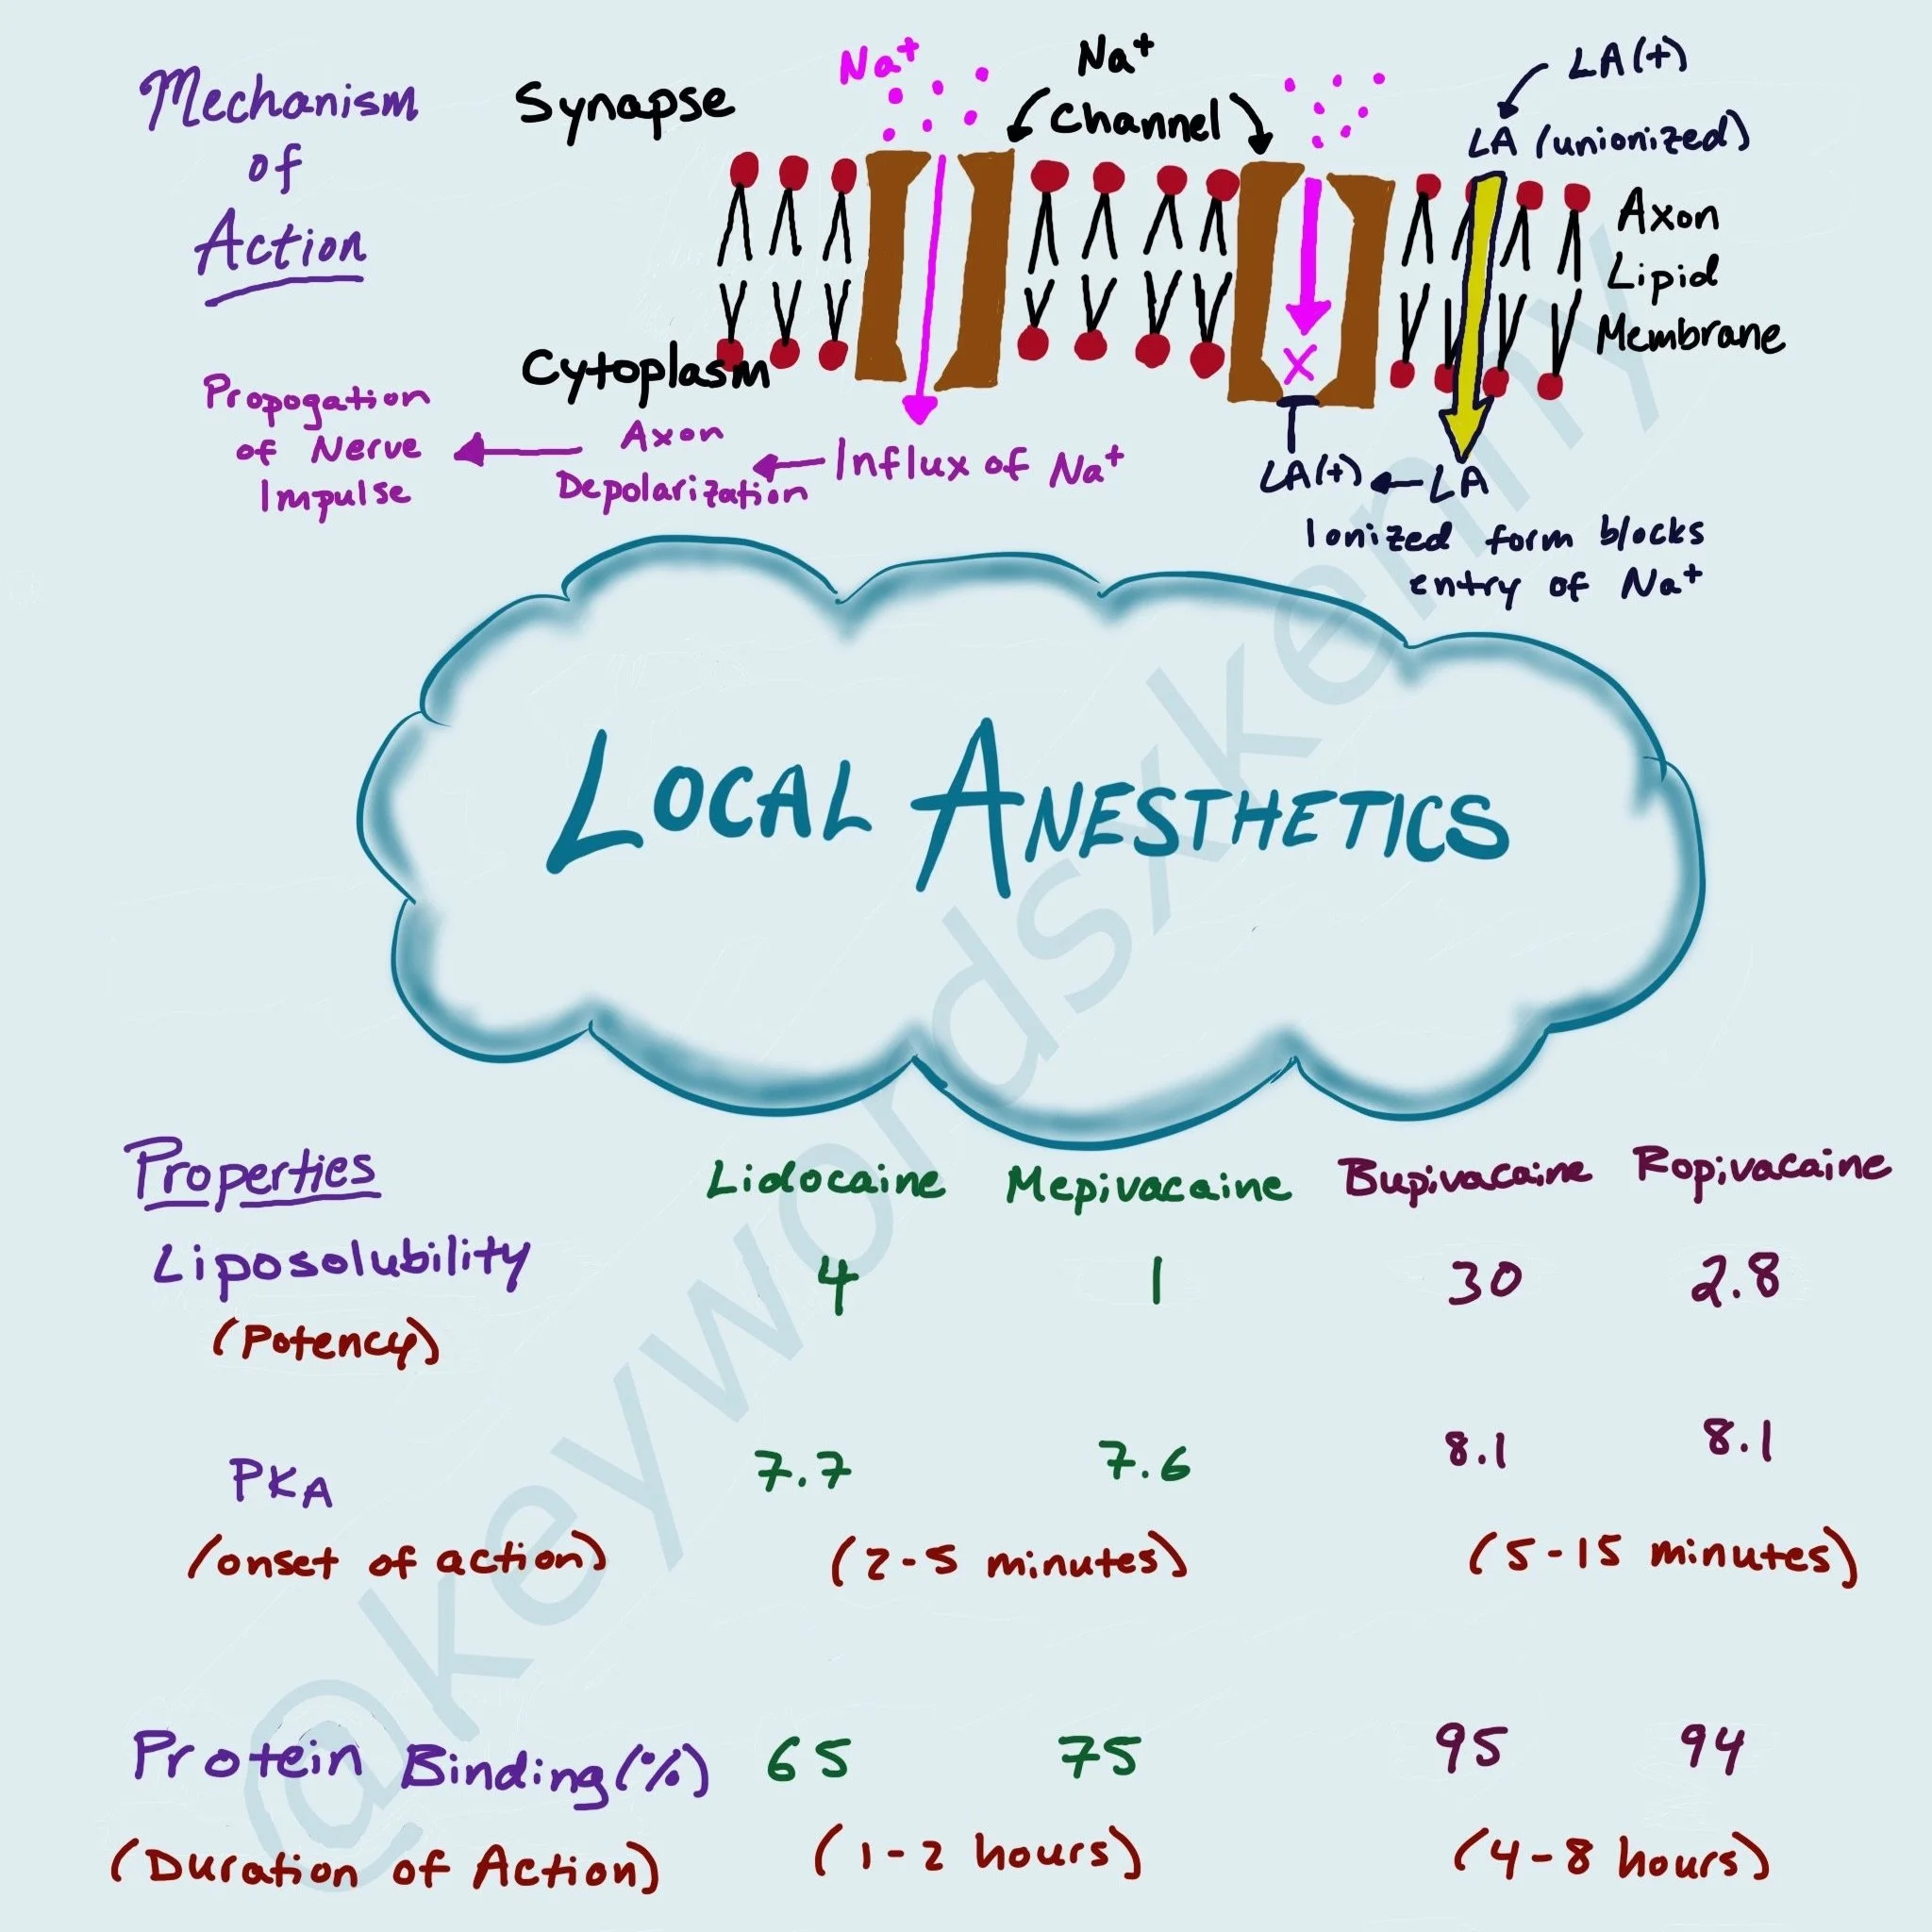 Mechanism
of
Action
Synapse
Na+
Na+
Channel
LA(+)
LA (unionized)
Axon
Lipid
Membrane
Cytoplasm
X
Propogation
of Nerve
Impulse
Axon
Depolarization
Influx of Na+
LA(+)
LA
Ionized form blocks
entry of Na+
LOCAL ANESTHETICS
Properties Lidocaine Mepivacaine Bupivacaine Ropivacaine
Liposolubility 4 1 30 2.8
(Potency)
PKA 7.7 7.6 8.1 8.1
(onset of action) (2-5 minutes) (5-15 minutes)
Protein Binding (%) 65 75 95 94
(Duration of Action) (1-2 hours) (4-8 hours)
@keywordsxkenny